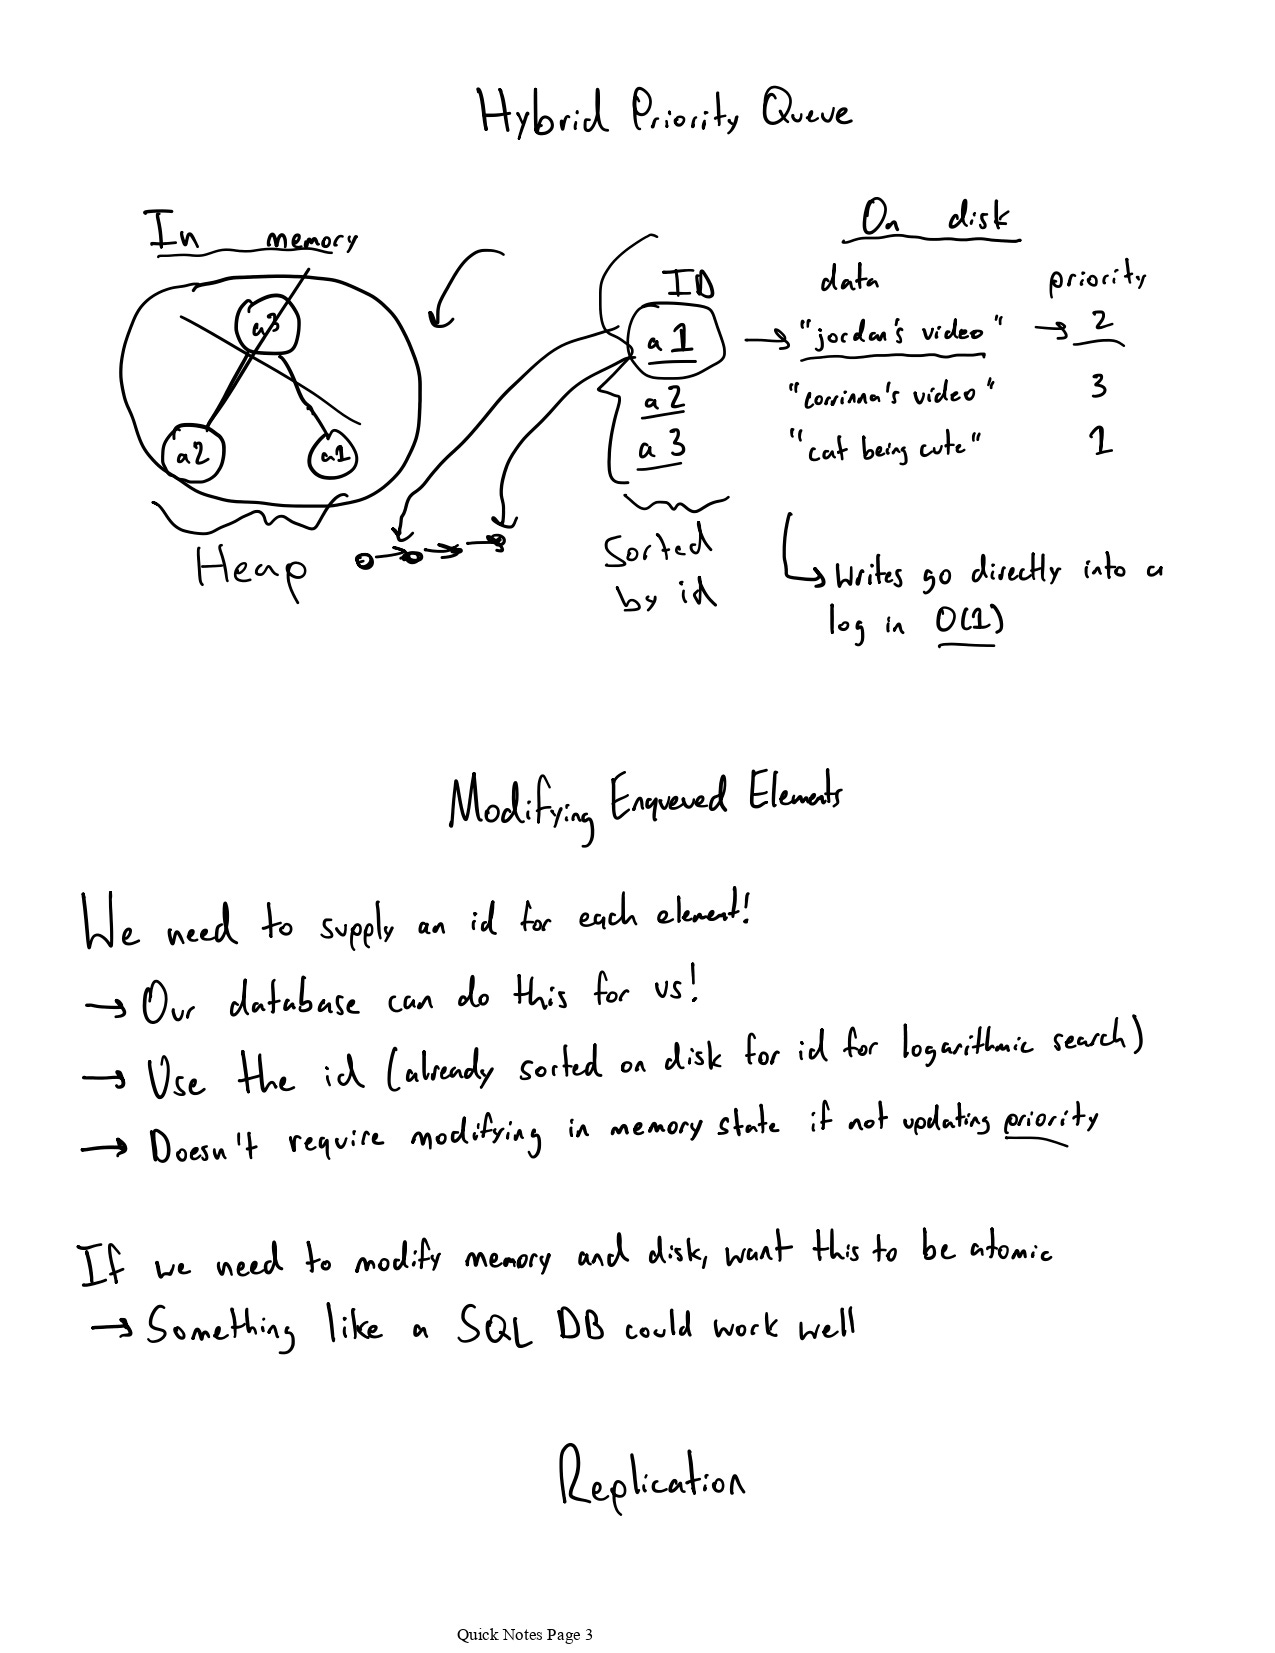 Hybrid Priority Queue
In memory
On disk
ID data priority
a1 "jordan's video" 2
a2 "corrinna's video" 3
a3 "cat being cute" 1
a3
a2 a1
Heap
Sorted
by id
Writes go directly into a
log in O(1)
Modifying Enqueued Elements
We need to supply an id for each element!
→ Our database can do this for us!
→ Use the id (already sorted on disk for id for logarithmic search)
→ Doesn't require modifying in memory state if not updating priority
If we need to modify memory and disk, want this to be atomic
→ Something like a SQL DB could work well
Replication
Quick Notes Page 3